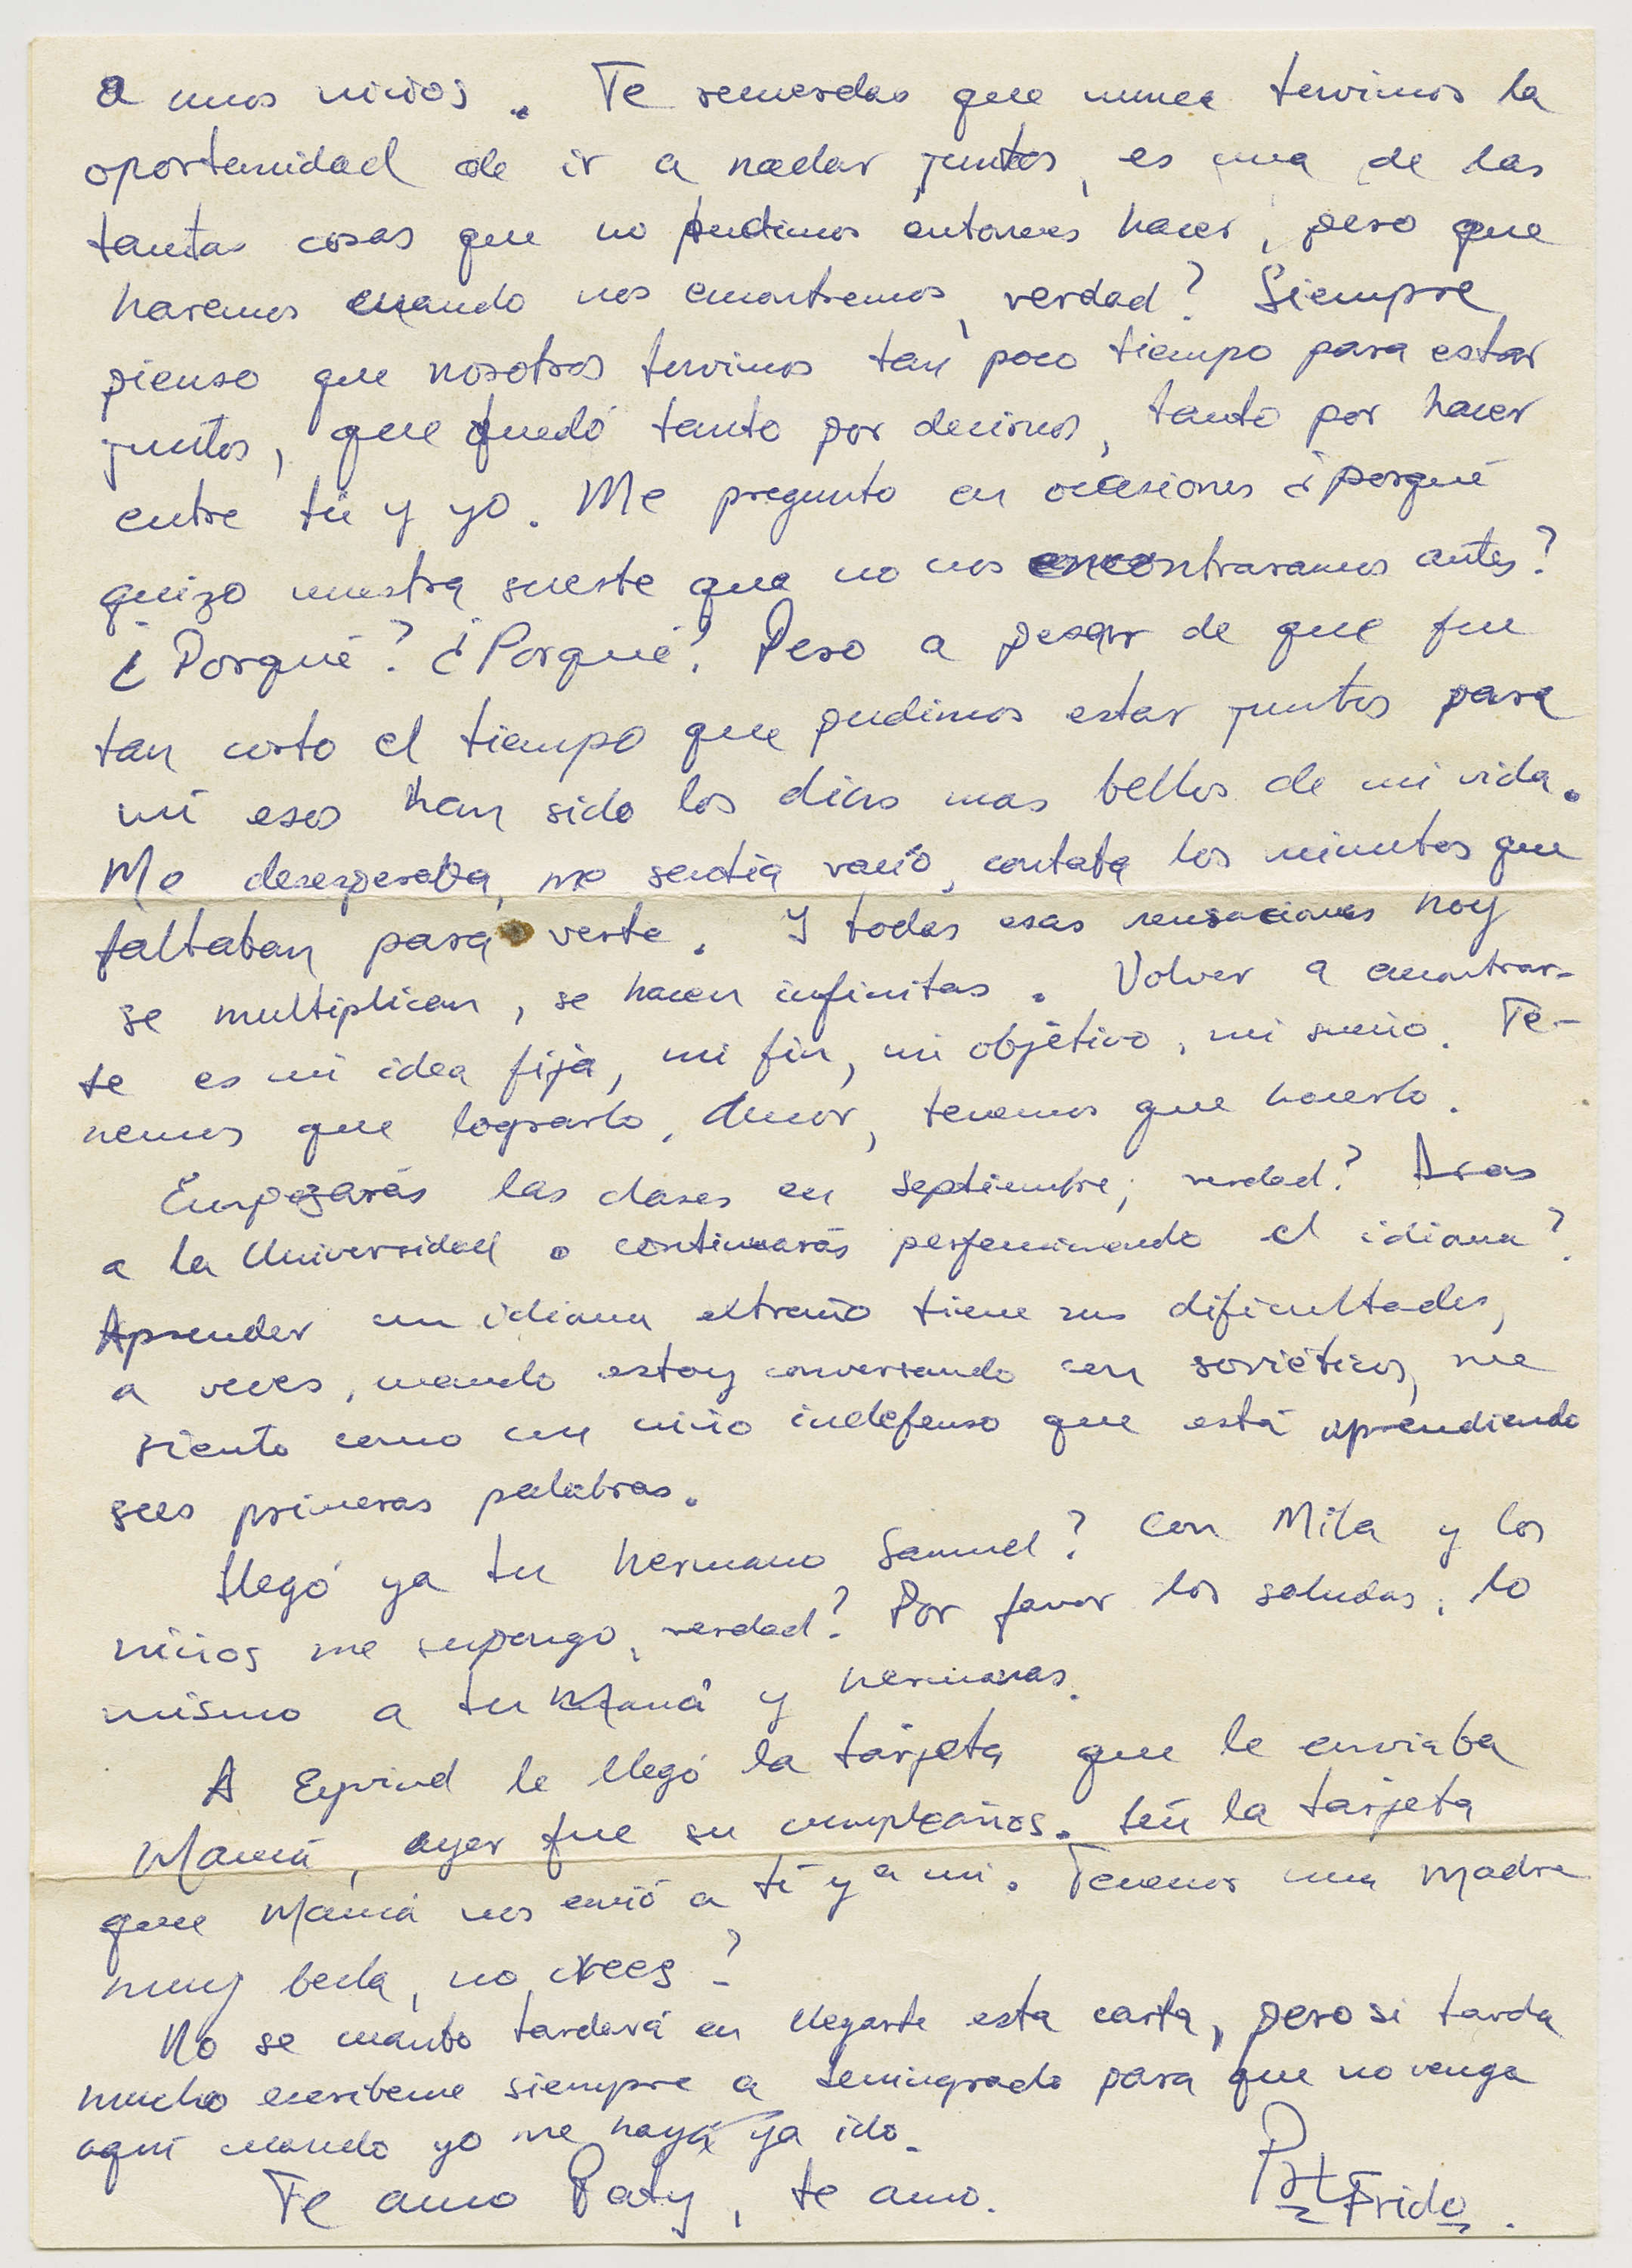 a unos niños. Te recuerdas que nunca tuvimos la
oportunidad de ir a nadar juntos, es una de las
tantas cosas que no pudimos entonces hacer, pero que
haremos cuando nos encontremos, verdad? Siempre
pienso que nosotros tuvimos tan poco tiempo para estar
juntos, que quedó tanto por decirnos, tanto por hacer
entre tú y yo. Me pregunto en ocasiones ¿porqué
quizo nuestra suerte que no nos encontraramos antes?
¿Porqué? ¿Porqué? Pero a pesar de que fue
tan corto el tiempo que pudimos estar juntos para
mí esos han sido los días mas bellos de mi vida.
Me desesperaba, me sentía vacío, contaba los minutos que
faltaban para verte. Y todas esas sensaciones hoy
se multiplican, se hacen infinitas. Volver a encontrar-
te es mi idea fija, mi fin, mi objetivo, mi sueño. Te-
nemos que lograrlo, Amor, tenemos que hacerlo.
Empezarás las clases en septiembre, verdad? Iras
a la Universidad o continuarás perfeccionando el idioma?
Aprender un idioma extraño tiene sus dificultades,
a veces, cuando estoy conversando con soviéticos, me
siento como un niño indefenso que está aprendiendo
sus primeras palabras.
Llegó ya tu hermano Samuel? Con Mila y los
niños me supongo, verdad? Por favor los saludas, lo
mismo a tu Mamá y hermanas.
A Eyvind le llegó la tarjeta que le enviaba
Mamá, ayer fue su cumpleaños. Leí la tarjeta
que Mamá nos envió a tí y a mi. Tenemos una Madre
muy bella, no crees?
No se cuanto tardará en llegarte esta carta, pero si tarda
mucho escribeme siempre a Leningrado para que no venga
aquí cuando yo me haya ya ido.
Te amo Paty, te amo.
Frido.